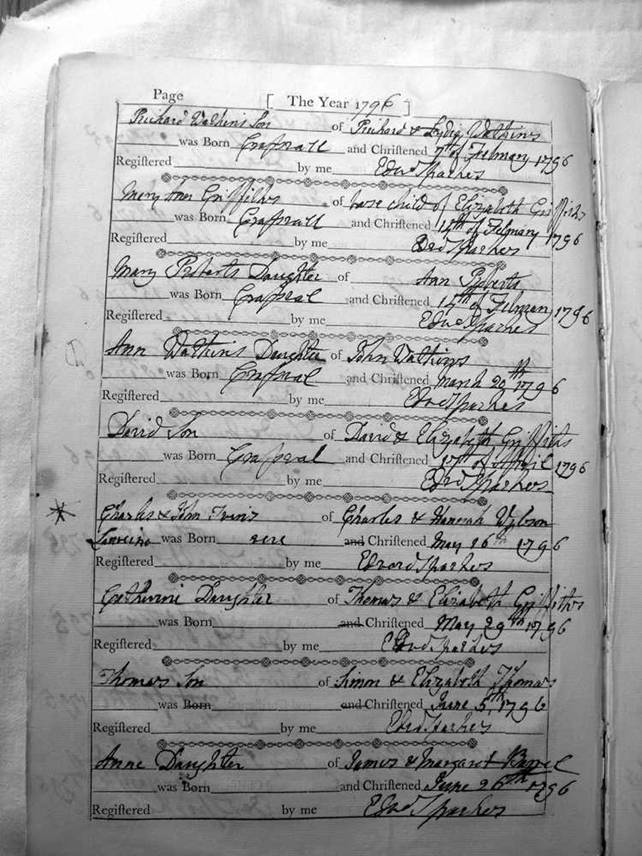 Page [ The Year 1796 ]
Richard Watkins Son of Richard & Lydia Watkins
was Born and Christened 7th of February 1796
Registered by me Edwd Sparkes
Mary Ann Griffiths of base child of Elizabeth Griffiths
was Born and Christened 14th of February 1796
Registered by me Edwd Sparkes
Mary Roberts Daughter of Ann Roberts
was Born and Christened of February 1796
Registered by me Edwd Sparkes
Ann Watkins Daughter of John Watkins
was Born and Christened March 29th 1796
Registered by me Edwd Sparkes
David Son of David & Elizabeth Griffiths
was Born and Christened 17th of April 1796
Registered by me Edwd Sparkes
Charles & John Twins of Charles & Hannah
was Born were and Christened May 16th 1796
Registered by me Edward Sparkes
Catherine Daughter of Thomas & Elizabeth Griffiths
was Born and Christened May 29th 1796
Registered by me Edwd Sparkes
Thomas Son of Simon & Elizabeth Thomas
was Born and Christened June 5th 1796
Registered by me Edwd Sparkes
Anne Daughter of James & Margaret
was Born and Christened June 26th 1796
Registered by me Edwd Sparkes